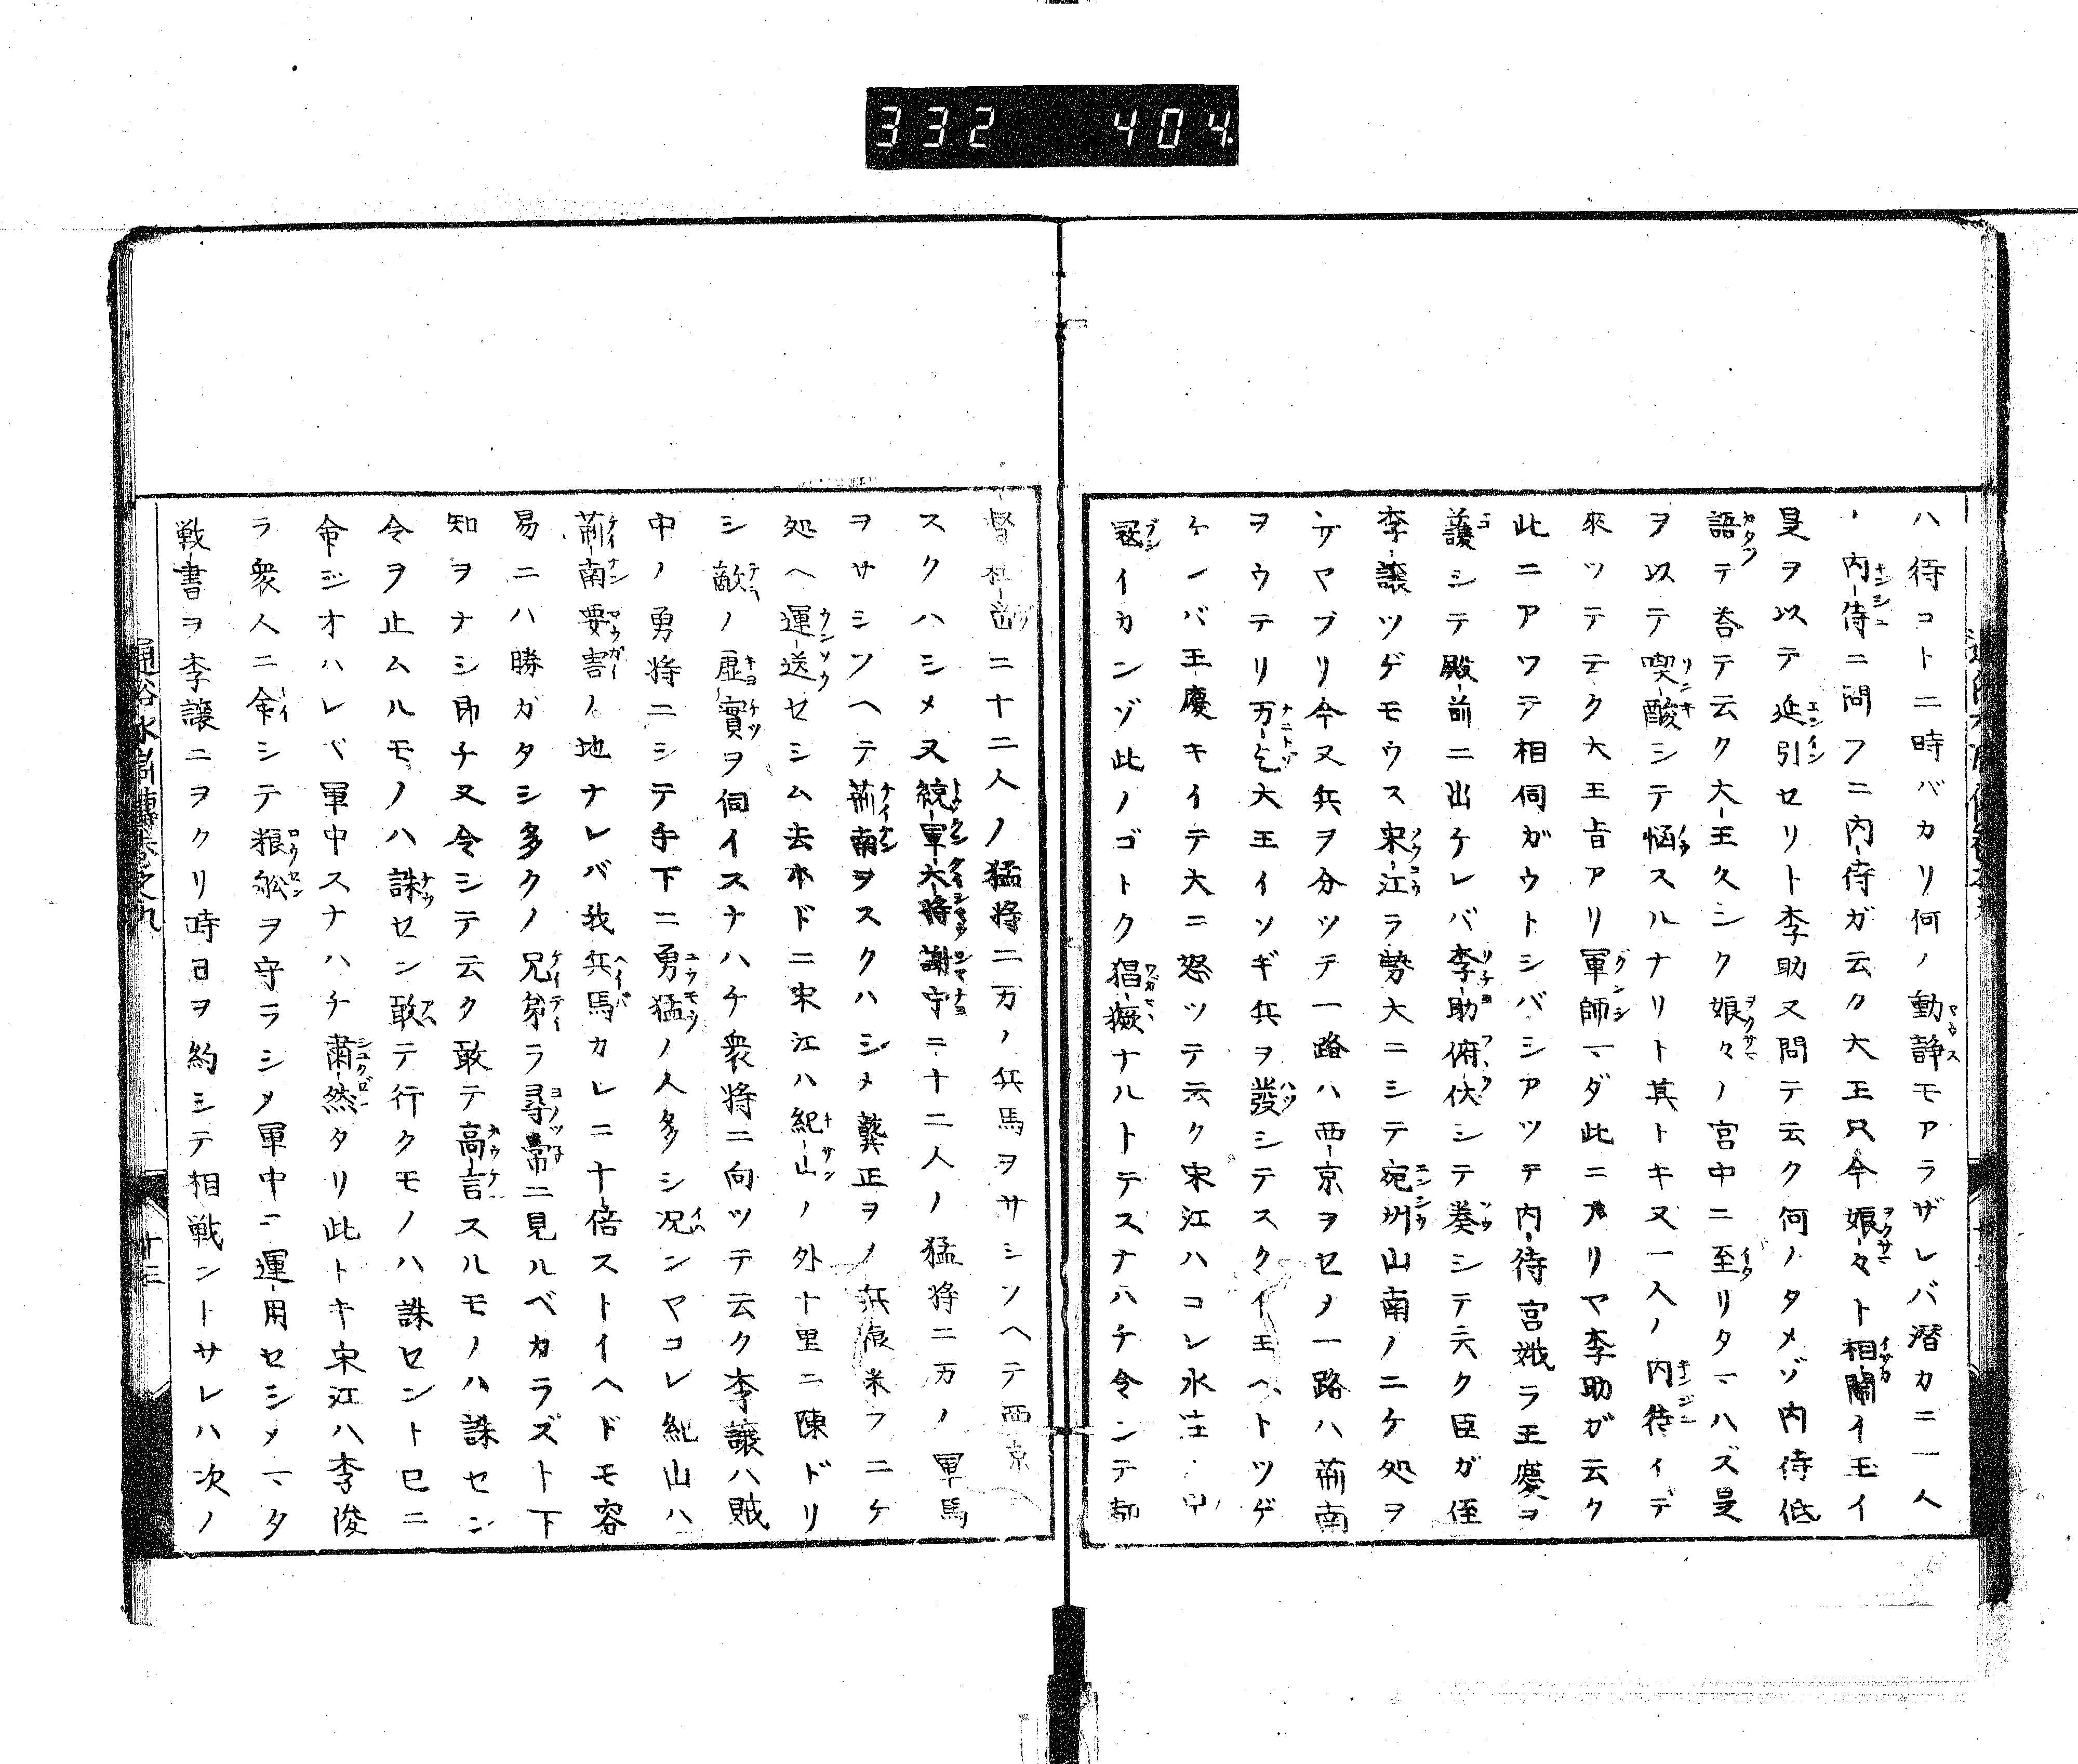 332 404
ハ待コト二時バカリ何ノ動静モアラザレバ潜カニ一人
ノ内侍ニ問フニ内侍ガ云ク大王只今娘々ト相鬧イモイ
是ヲ以テ延引セリト李助又問テ云ク何ノタメゾ内侍低
語テ答テ云ク大王久シク娘々ノ宮中ニ至リタマハズ是
ヲ以テ喫酸シテ悩スルナリト其トキ又一人ノ内侍イデ
來ツテテク大王旨アリ軍師マダ此ニアリヤ李助ガ云ク
此ニアツテ相伺ガウトシバシアツテ内侍宮娥ラ王慶ヲ
護シテ殿前ニ出ケレバ李助俯伏シテ奏シテ云ク臣ガ侄
李譲ツゲモウス宋江ラ勢大ニシテ宛州山南ノニケ処ヲ
ウヤブリ今又兵ヲ分ツテ一路ハ西京ヲセメ一路ハ荊南
ヲウテリ万乞大王イソギ兵ヲ發シテスクイ玉ヘトツゲ
ケレバ王慶キイテ大ニ怒ツテ云ク宋江ハコレ水洼ノ中
冦イカンゾ此ノゴトク猖獗ナルトテスナハチ令シテ都
督杜壆ニ十二人ノ猛将二万ノ兵馬ヲサシソヘテ西京
スクハシメ又統軍大将謝宇ニ十二人ノ猛将二万ノ軍馬
ヲサシソヘテ荊南ヲスクハシメ龔正ヲノ兵粮米フニケ
処ヘ運送セシム去ホドニ宋江ハ紀山ノ外十里ニ陳ドリ
シ敵ノ虚實ヲ伺イスナハチ衆将ニ向ツテ云ク李譲ハ賊
中ノ勇将ニシテ手下ニ勇猛ノ人多シ况ンヤコレ紀山ハ
荊南要害ノ地ナレバ我兵馬カレニ十倍ストイヘドモ容
易ニハ勝ガタシ多クノ兄弟ラ尋常ニ見ルベカラズト下
知ヲナシ即チ又令シテ云ク敢テ高言スルモノハ誅セン
令ヲ止ムルモノハ誅セン敢テ行クモノハ誅セント已ニ
命ジオハレバ軍中スナハチ粛然タリ此トキ宋江ハ李俊
ラ衆人ニ命シテ粮舩ヲ守ラシメ軍中ニ運用セシメマタ
戦書ヲ李譲ニヲクリ時日ヲ約シテ相戦ントサレハ次ノ
通俗水滸傳巻之九
十三